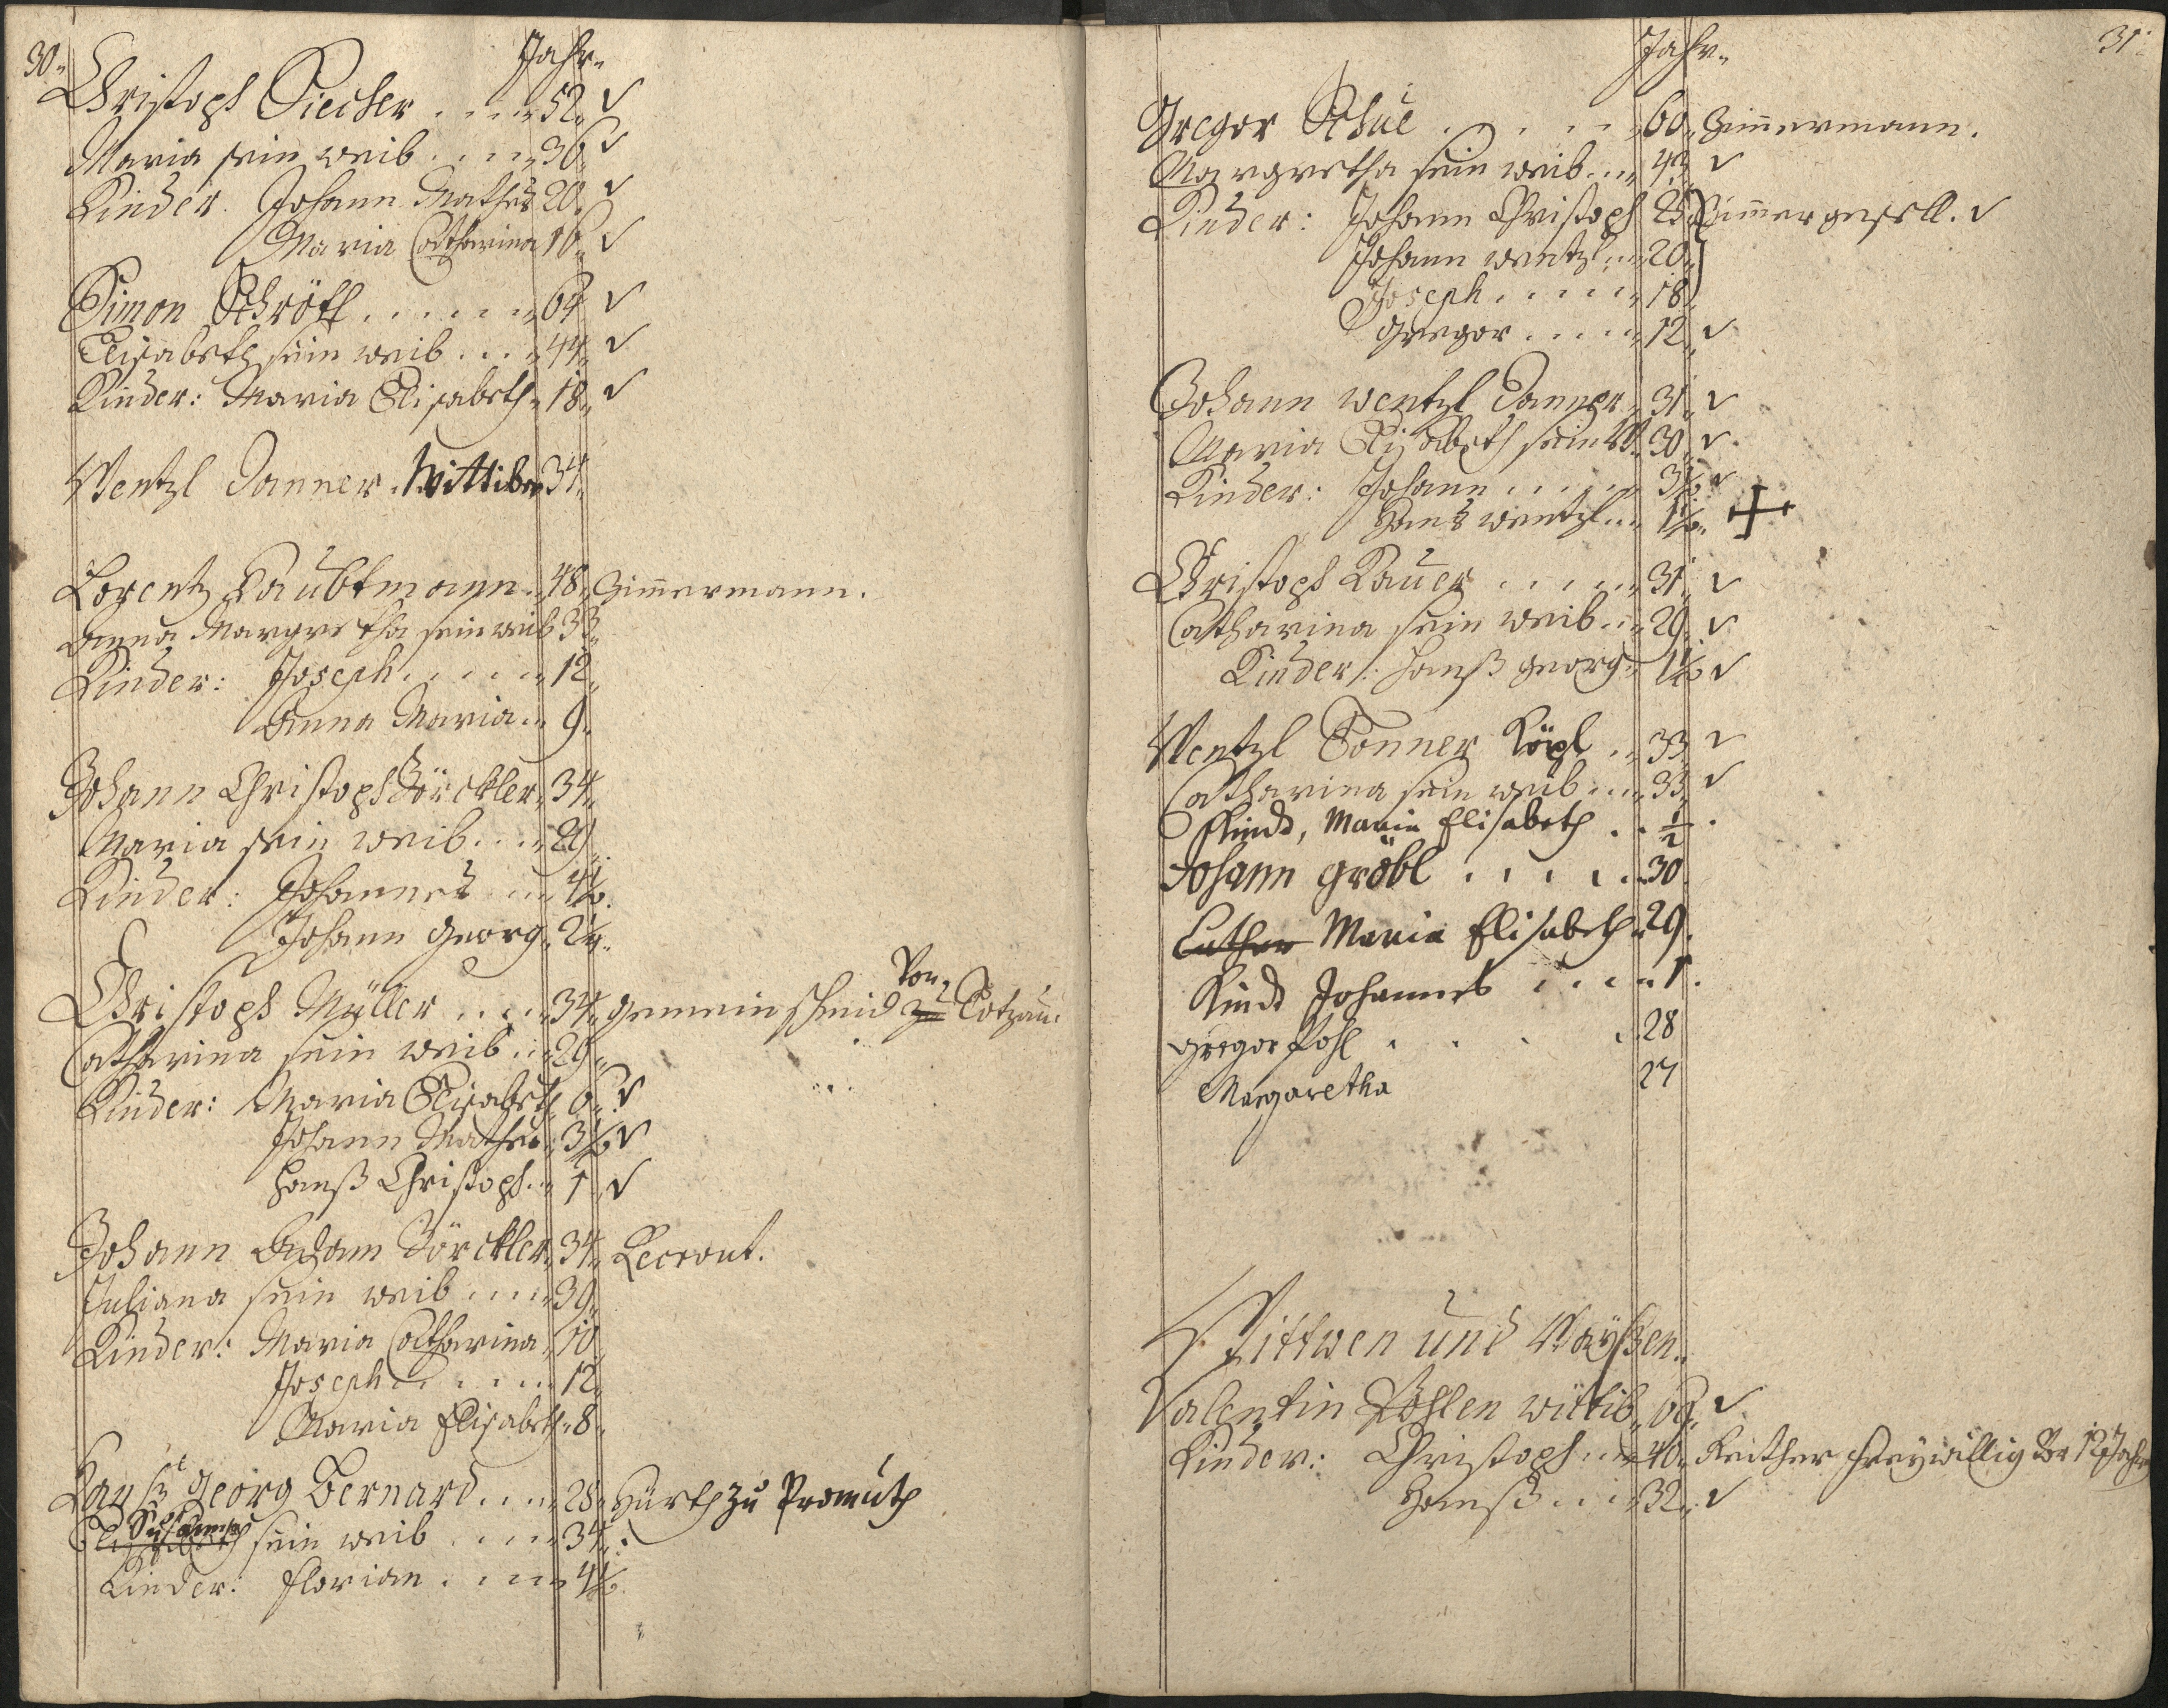 30.
Jahr.
Christoph Siecher .... 52. ✓
Maria sein weib .... 36 ✓
Kinder. Johann Mathes 20. ✓
Maria Catharina 16. ✓
Simon Schröll ...... 64 ✓
Elisabeth sein weib .... 44. ✓
Kinder: Maria Elisabeth. 18. ✓
Wentzl Danner. Wittiber 34.
Lorentz Haubtmann. 48. Zimmermann.
Anna Margretha sein weib 33.
Kinder: Joseph ..... 12.
Anna Maria .. 9.
Johann Christoph Zörckler. 34.
Maria sein weib .... 29.
Kinder: Johannes .. 4½.
Johann Georg. 2¼.
Christoph Müller .... 34. gemein schmid zu Von Totzau.
Catharina sein weib .. 29.
Kinder: Maria Elisabeth 6. ✓
Johann Mathes. 3½ ✓
Hanß Christoph. 1. ✓
Johann Adam Zörckler. 34. Recrout.
Juliana sein weib .... 39.
Kinder: Maria Catharina 10.
Joseph ..... 12.
Maria Elisabeth. 8.
Hanß Georg Bernard .... 28. Hürth zu Promuth
Susanna sein weib .... 34.
Kinder: Florian .... 4½.
31.
Jahr.
Gregor Schue ..... 60. Zimmermann.
Margretha sein weib ... 43. ✓
Kinder: Johann Christoph 23. Zimmergesell. ✓
Johann wentzl ... 20.
Joseph ..... 18.
Gregor .... 12. ✓
Johann Wentzl Danner. 31. ✓
Maria Elisabeth sein W. 30. ✓
Kinder: Johann ..... 3½ ✓
Hans wentzl ... 1½. +
Christoph Lauer ..... 31. ✓
Catharina sein weib ... 29. ✓
Kinder: Hanß Georg. 1½ ✓
Wentzl Tonner Köpl .. 33. ✓
Catharina sein weib .... 33. ✓
Kindt, Maria Elisabeth .. ½.
Johann Gröbl ..... 30.
Cather Maria Elisabeth. 29.
Kindt Johannes .... 1.
Gregor Pohl .... 28
Margaretha 27
Wittwen und Waysen.
Valentin Pohlen wittib. 69. ✓
Kinder: Christoph ... 40. Reither freywillig 12 Jahr
Hanß ... 32. ✓